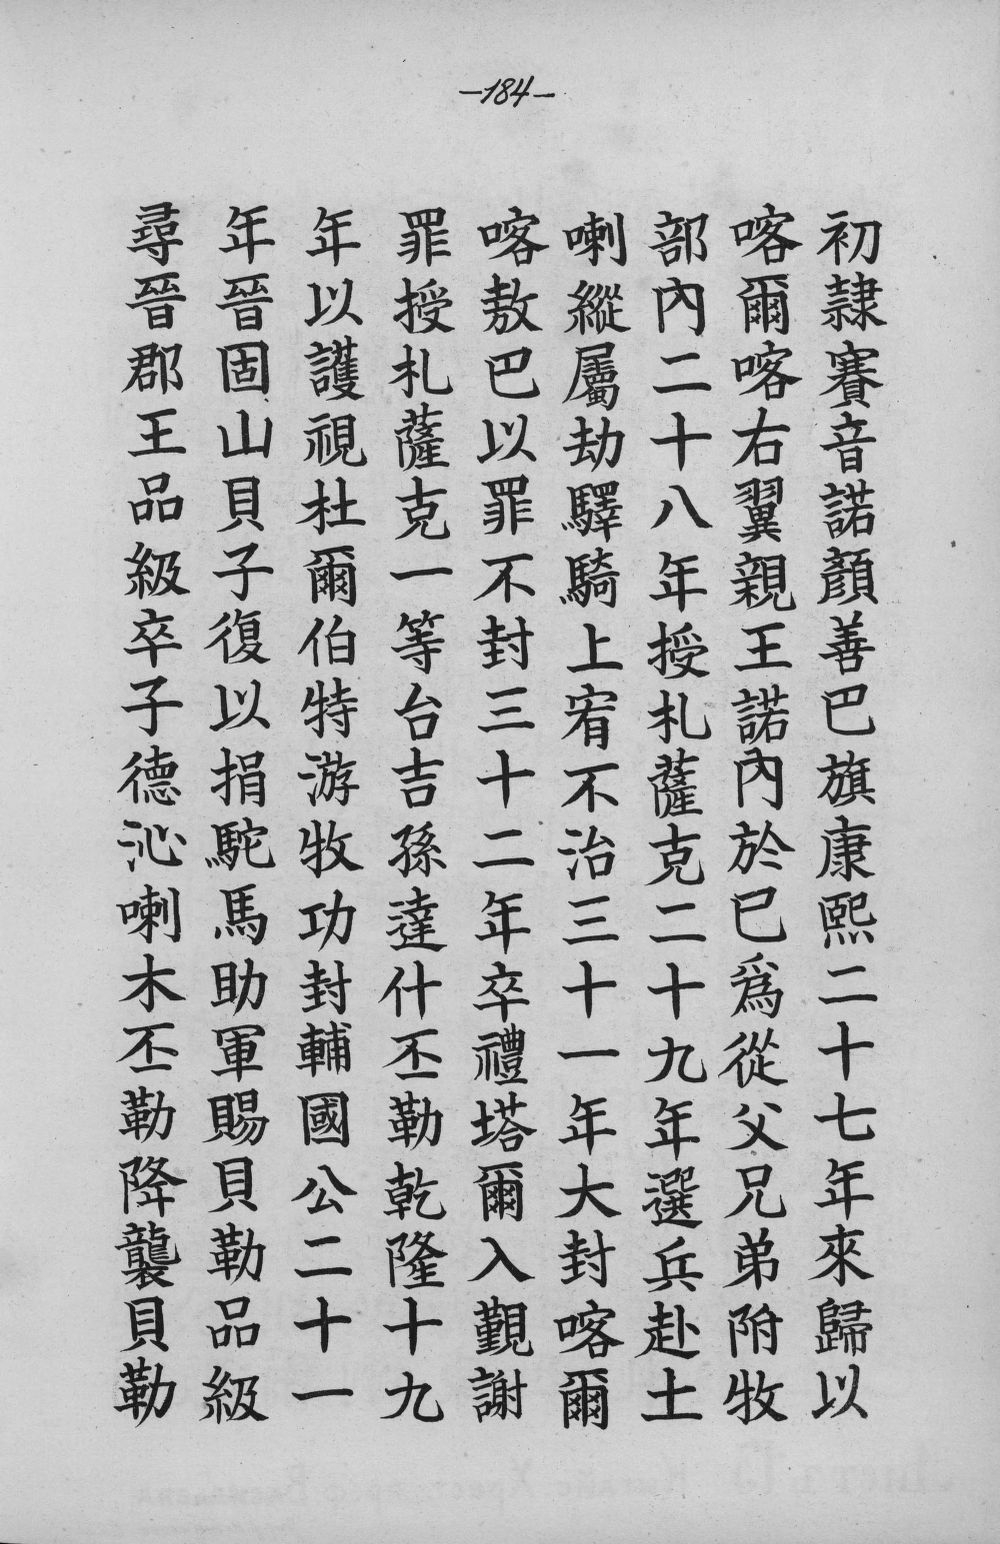 —184—
初隷賽音諾顏善巴旗康熙二十七年來歸以
喀爾喀右翼親王諾內於巳爲從父兄弟附牧
部內二十八年授札薩克二十九年選兵赴土
喇縱屬劫驛騎上宥不治三十一年大封喀爾
喀敖巴以罪不封三十二年卒禮塔爾入覲謝
罪授札薩克一等台吉孫達什丕勒乾隆十九
年以護視杜爾伯特游牧功封輔國公二十一
年晉固山貝子復以捐駝馬助軍賜貝勒品級
尋晉郡王品級卒子德沁喇木丕勒降襲貝勒